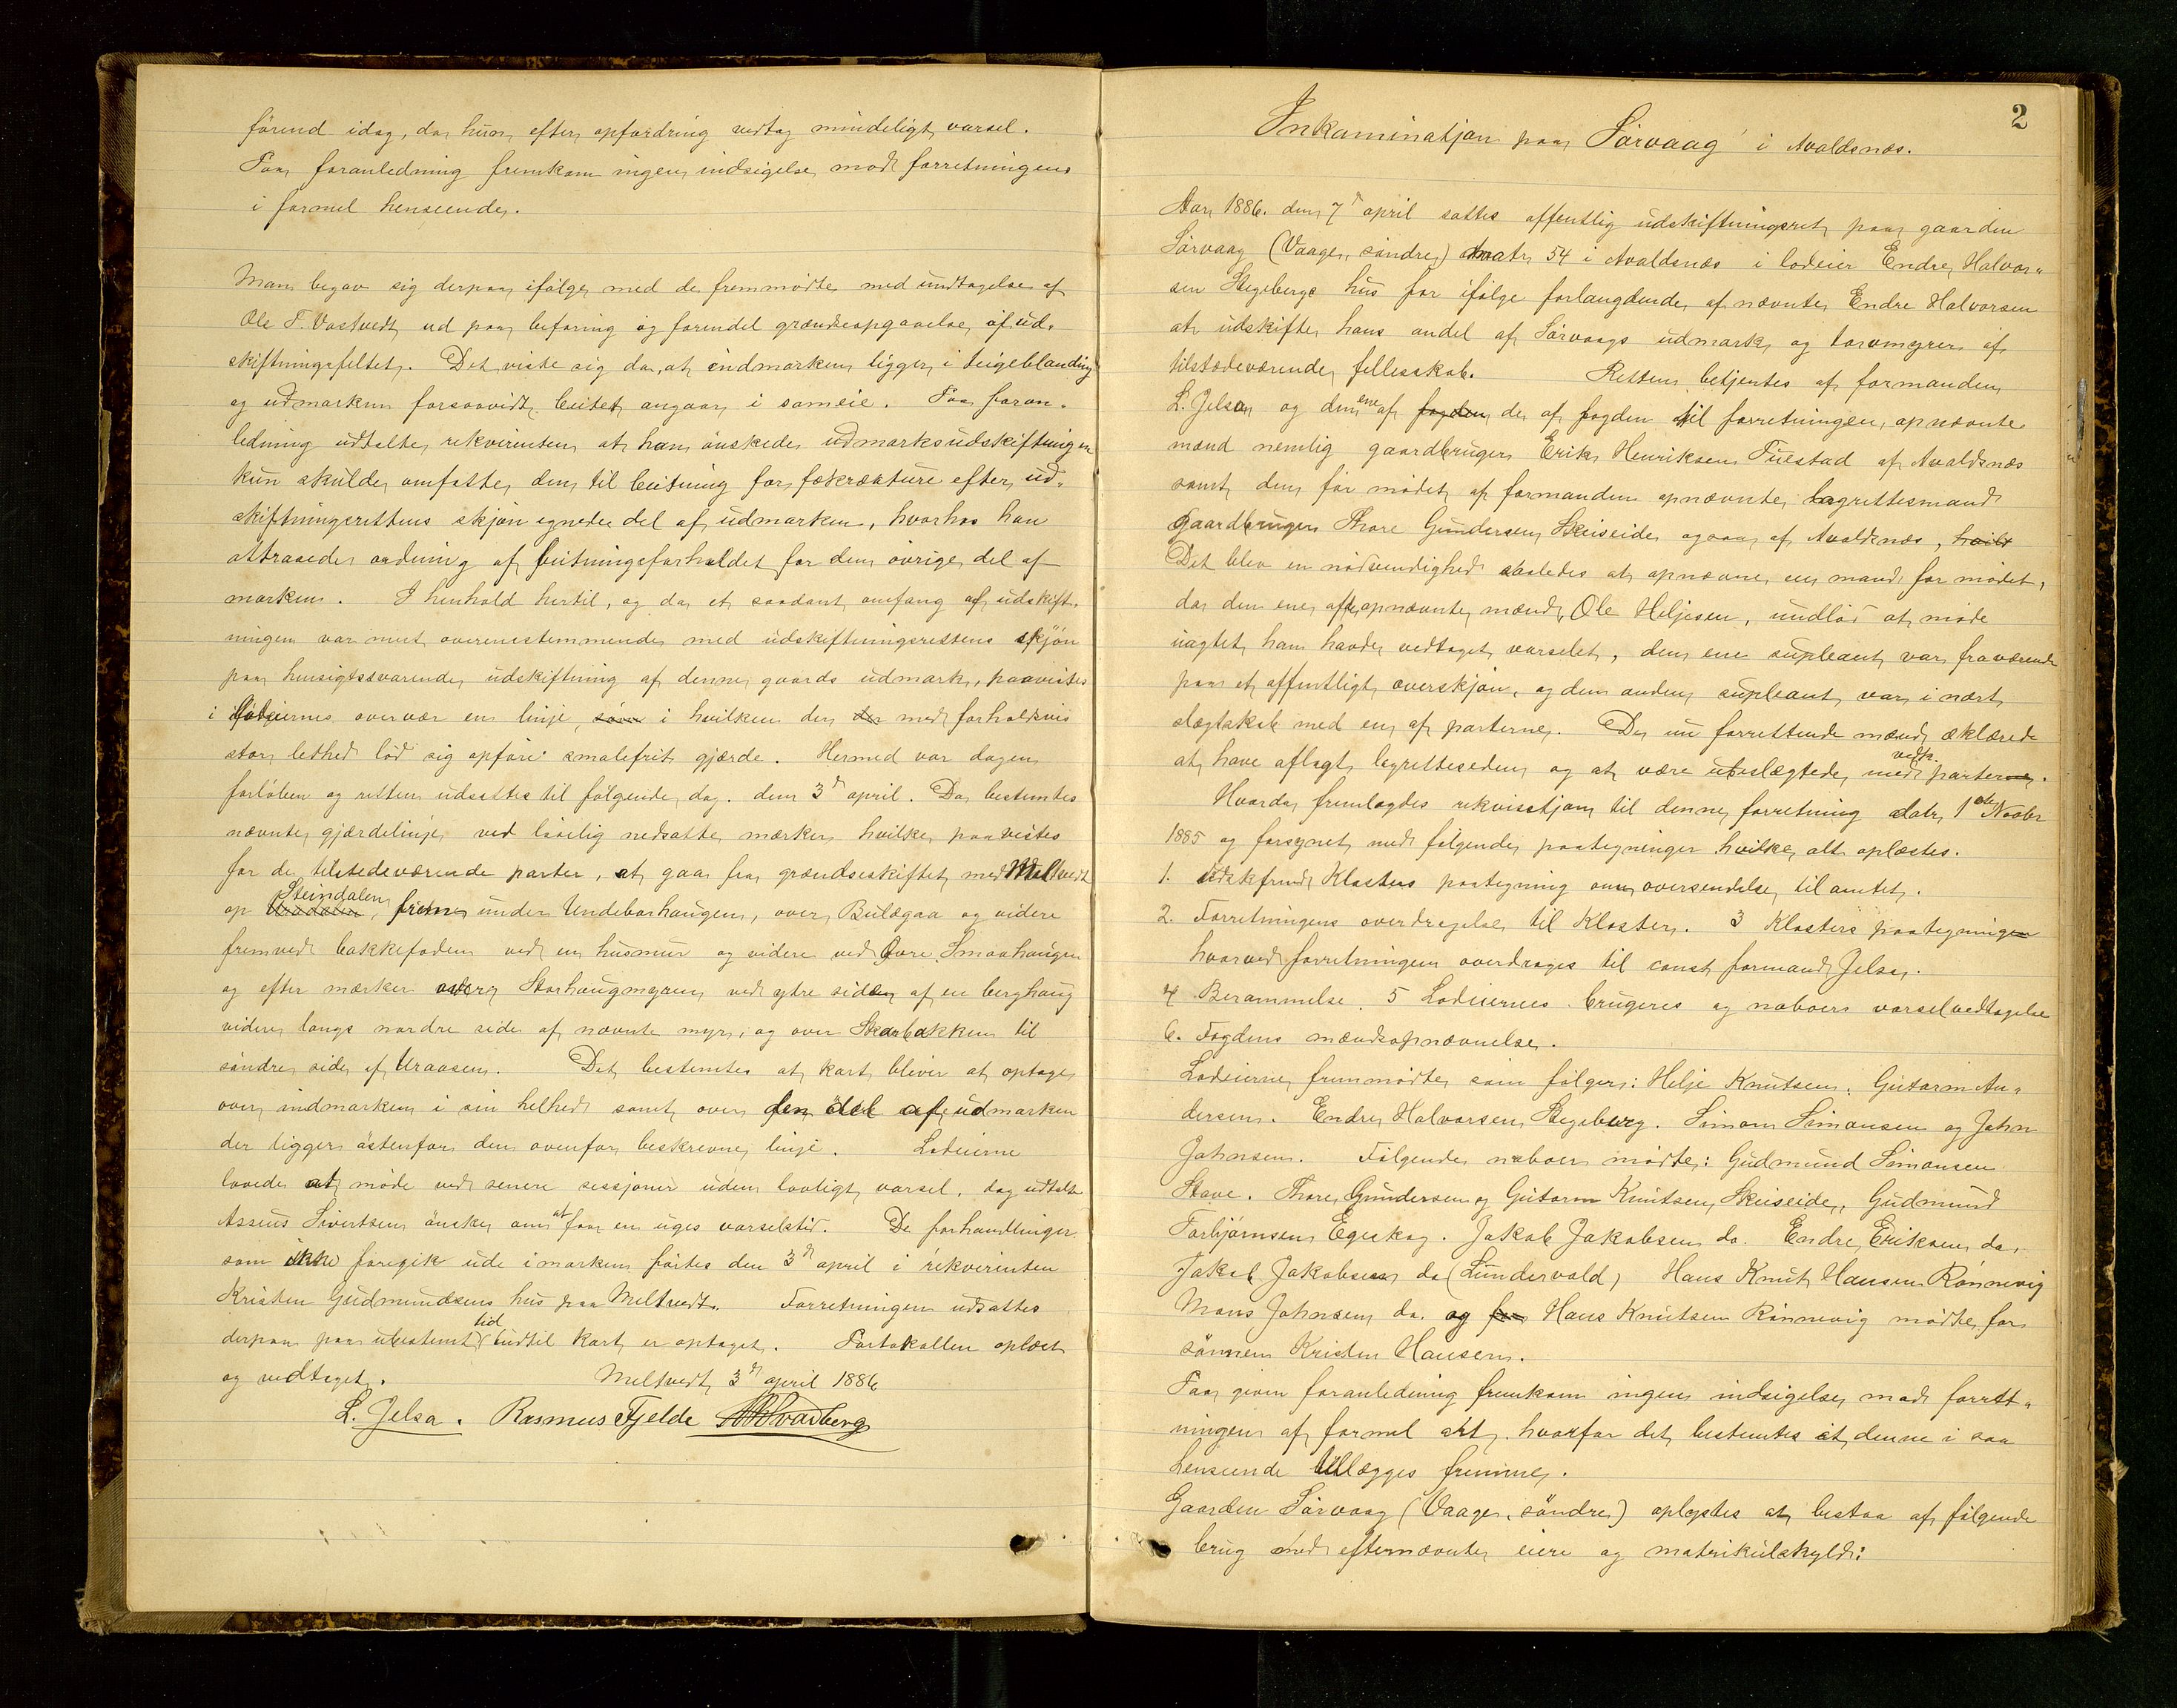 förend idag, da hun efter opfordring vedtog mindeligt varsel.
Paa foranledning fremkom ingen indsigelse mod forretningens
i formel henseende.
Man begav sig derpaa ifölge med de fremmödte med undtagelse af
Ole T. Vastvedt ud paa befaring og forendel grændseopgaaelse af ud-
skiftningsfeltet. Det viste sig da, at indmarken ligger i teigeblanding
og udmarken forsaavidt beitet angaar i sameie. Paa foran-
ledning udtalte rekvirenten at han önskede udmarksudskiftningen
kun skulde omfatte den til beitning for fækræature efter ud-
skiftningsrettens skjön egnede del af udmarken, hvorhos han
attraaede ordning af beitningsforholdet for den övrige del af
marken. I henhold hertil, og da et saadant omfang af udskift-
ningen var mest overenestemmende med udskiftningsrettens skjön
paa hensigtssvarende udskiftning af denne gaards udmark, paavistes
i lodeiernes overvær en linje, som i hvilken der der med forholdsvis
stor lethed lod sig opföre smalefrit gjærde. Hermed var dagen
forlöben og retten udsattes til fölgende dag. den 3d april. Da bestemtes
nævnte gjærdelinje ved lovlig nedsatte mærker hvilke paavistes
for de tilstedeværende parter, at gaa fra grændseskiftet med Meltvedt
op Steindalen, frem under Undebarhaugen, over Bulægaa og videre
fremved bakkefoden ved en husmur og videre ved Övre Smaahaugen
og efter mærker over Storhaugmyren ved ytre siden af en berghaug
videre langs nordre side af nævnte myr, og over Skarbakken til
söndre side af Uraasen. Det bestemtes at kart bliver at optage
over indmarken i sin helhed samt over den del af udmarken
der ligger östenfor den ovenfor beskrevne linje. Lodeierne
lovede at möde ved senere sessjoner uden lovligt varsel, dog udtalte
Asseus Sivertsen önske om at faa en uges varselstid. De forhandlinger
som ikke foregik ude i marken förtes den 3d april i rekvirenten
Kristen Gudmundsens hus paa Meltvedt. Forretningen udsattes
derpaa paa ubestemt tid indtil kart er optaget. Protokollen oplæst
og vedtaget. Meltvedt 3d april 1886
L. Jelsa. Rasmus Fjelde
2
Inkaminatjon paa Sörvaag i Avaldsnæs.
Aar 1886. den 7d april sattes offentlig udskiftningsret paa gaarden
Sörvaag (Vaage, söndre) matr 54 i Avaldsnæs i lodeier Endre Halvor-
sen Stegebergs hus for ifölge forlangdende af nævnte Endre Halvorsen
at udskifte hans andel af Sörvaags udmark og torvmyrer af
tilstedeværende fellesskab. Retten betjentes af formanden
L. Jelsa og den ene af fogden de af fogden til forretningen opnævnte
mænd nemlig gaardbruger Erik Henriksen Tuestad af Avaldsnæs
samt den för mödet af formanden opnævnte lagrettesmand
gaardbruger Thore Gundersen Skeiseide ogsaa af Avaldsnæs, hvilt
Det blev en nödvendighed saaledes at opnævne en mand för mödet,
da den ene af de opnævnte mænd, Ole Heljesen, undlod at möde
uagtet han havde vedtaget varselet, den ene supleant var fraværende
paa et offentligt overskjön, og den anden supleant var i nært
slægtskab med en af parterne. De nu forrettende mænd æklærede
at have aflagt lagretteseden og at være ubeslægtede med vedk. parterne.
Hvorda fremlagdes rekvisitjon til denne forretning datr 1ste Novbr
1885 og forsynet med fölgende paategninger hvilke alt oplæstes.
1. Udskfmd Klosters paategning om oversendelse til amtet.
2. Forretningens overdragelse til Kloster. 3 Klosters paategningen
hvorved forretningen overdrages til const formand Jelsa.
4 Berammelse. 5 Lodeiernes brugeres og naboers varselvedtagelse
6. Fogdens mændsopnævnelse.
Lodeierne fremmödte som fölger: Helje Knutsen. Gutorm An-
dersen. Endre Halvorsen Stegeberg. Simon Simonsen og John
Johnsen. Fölgende naboer mödte: Gudmund Simonsen
Stave. Thore Gundersen og Gutorm Knutsen Skeiseide, Gudmund
Torbjörnsen Egeskog. Jakob Jakobsen do. Endre Eriksen do.
Jakob Jakobsen do (Lundervold) Hans Knut Hansen Rönnevig
Mons Johnsen do. og for Hans Knutsen Rönnevig mödte for
sönnen Kristen Hansen.
Paa given foranledning fremkom ingen indsigelse mod forret-
ningen af formel art, hvorfor det bestemtes at denne i saa
henseende tillægges fremme.
Gaarden Sörvaag (Vaage, söndre) oplystes at bestaa af fölgende
brug med efternævnte eiere og matrikulskyld: